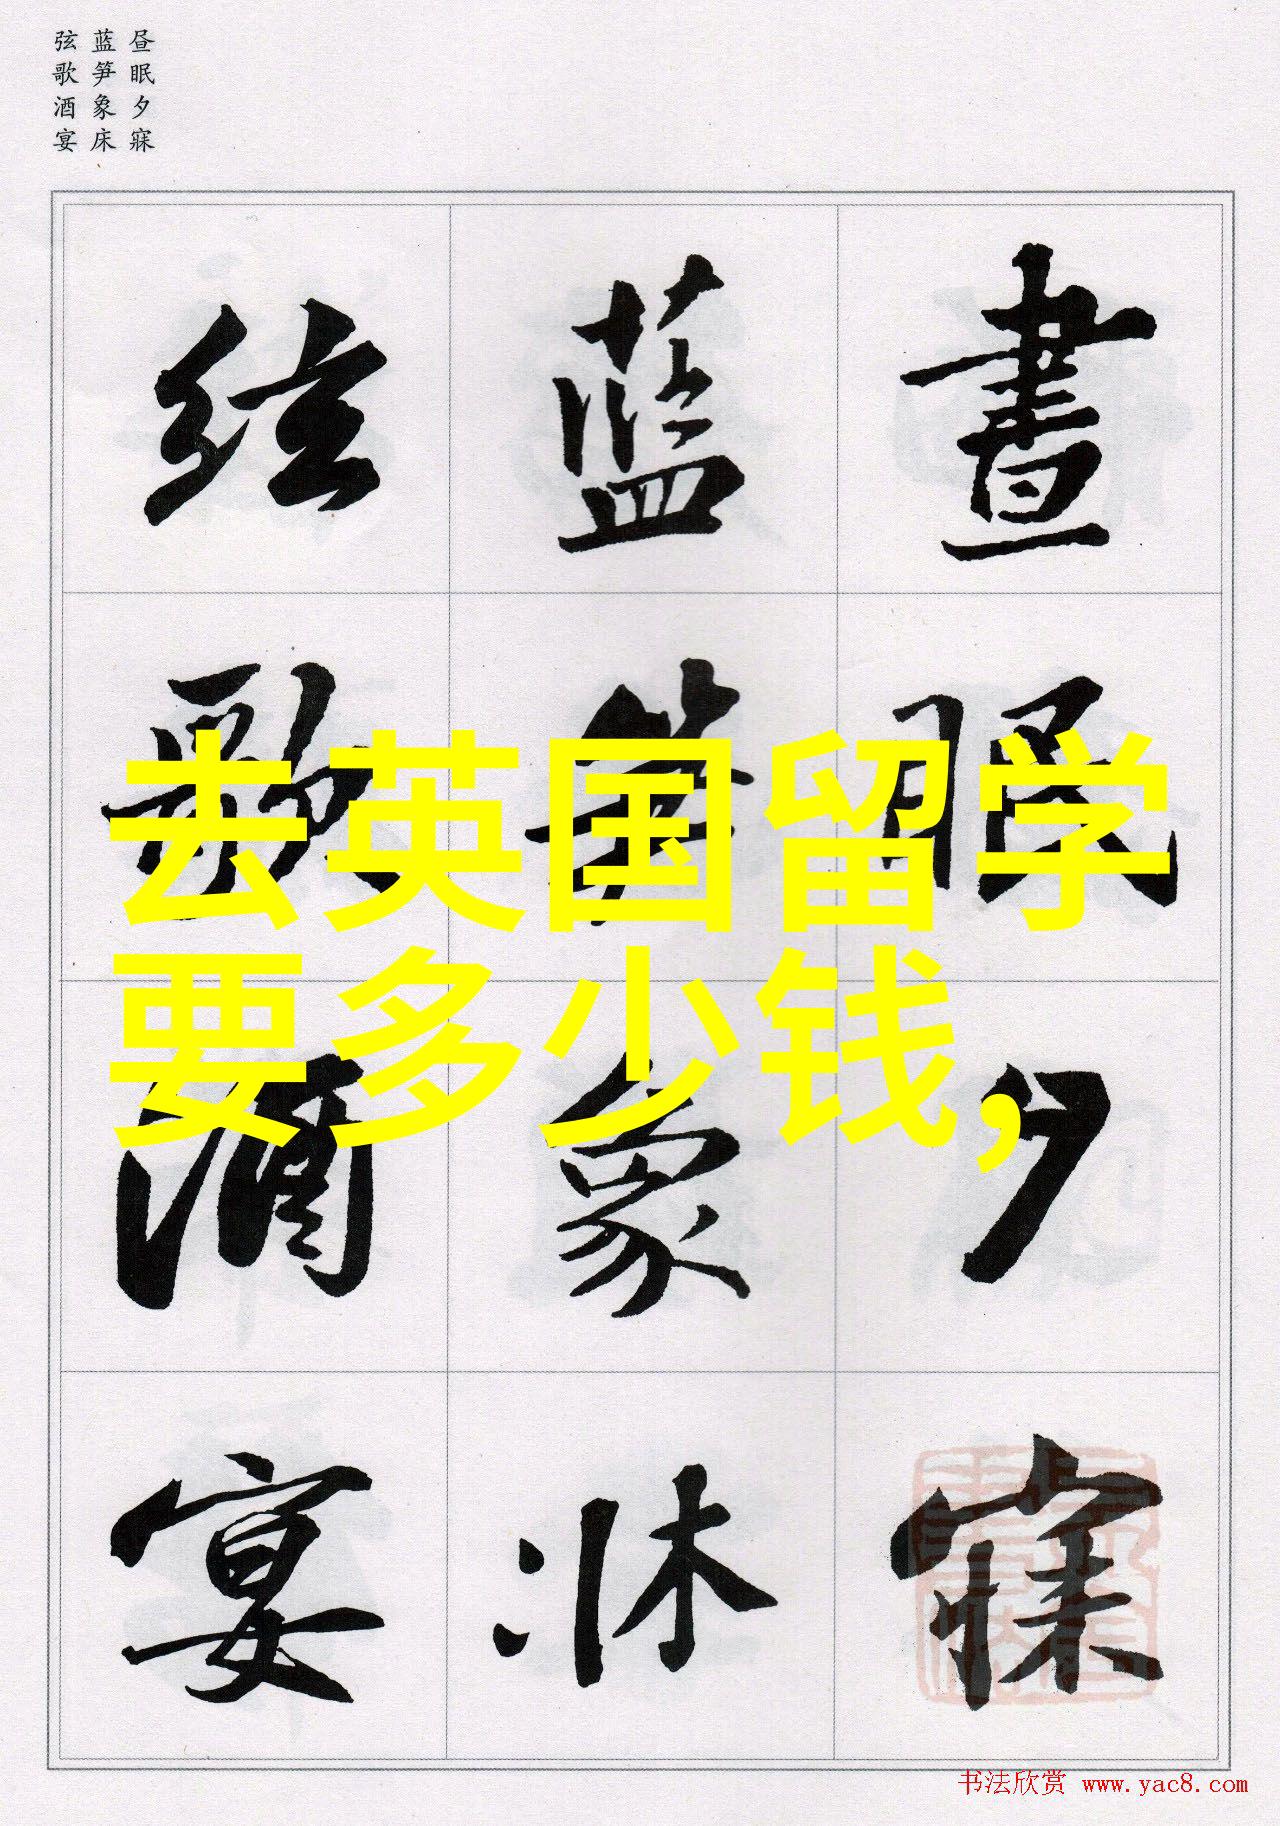 昼眠夕寐
蓝笋象床
弦歌酒宴
晝眠夕寐
蓝笋象牀
絃歌酒宴
去英国留学
要多少钱,
书法欣赏 www.yac8.com